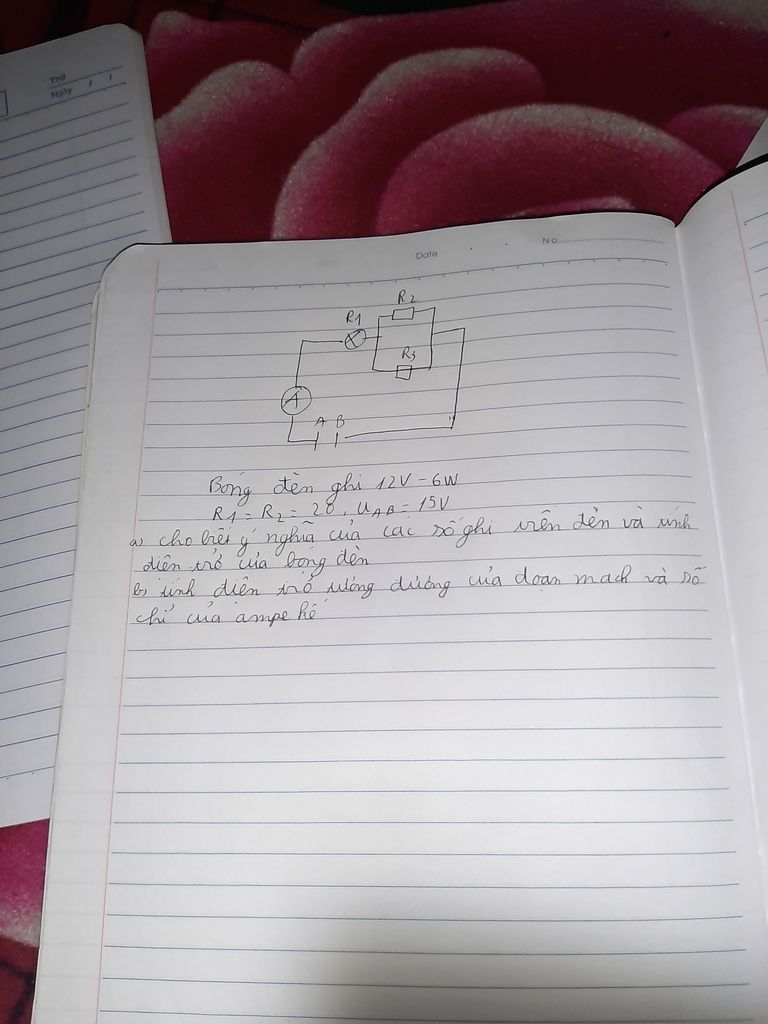 Thứ
Ngày / /
Date
No
R2
R1
R3
A
A B
Bóng đèn ghi 12V - 6W
R1 = R2 = 20, UAB = 15V
a) cho biết ý nghĩa của các số ghi trên đèn và tính
điện trở của bóng đèn
b) tính điện trở tương đương của đoạn mạch và số
chỉ của ampe kế